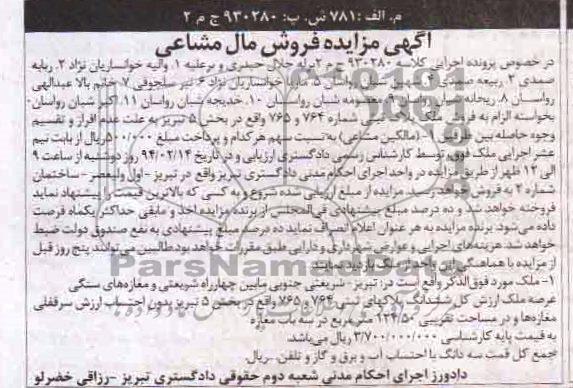 م. الف: ۷۸۱ ش. ب: ۹۳۰۲۸۰ ج م ۲
آگهی مزایده فروش مال مشاعی
در خصوص پرونده اجرایی کلاسه ۹۳۰۲۸۰ ج م ۲ له جلال حیدری و برعلیه ۱. والیه خوانساریان نژاد ۲. ربابه
صمدی ۳. ربیعه صمدی ۴. شبان رواسان ۵. خوانساریان نژاد ۶. تبر سلجوقی ۷. خانم بالا عبدالهی
رواسان ۸. ریحانه شبان رواسان ۹. معصومه شبان رواسان ۱۰. خدیجه شبان رواسان ۱۱. اکبر شبان رواسان-
بخواسته الزام به فروش ملک شماره ۷۶۴ و ۷۶۵ واقع در بخش ۵ تبریز به علت عدم افراز و تقسیم
وجوه حاصله بین طرفین (مالکین مشاعی) به نسبت سهم هر کدام و پرداخت مبلغ ۵۰۰/۰۰۰ ریال از بابت نیم
عشر اجرایی ملک فوق، توسط کارشناس رسمی دادگستری ارزیابی و در تاریخ ۹۴/۰۲/۱۴ روز دوشنبه از ساعت ۹
الی ۱۲ ظهر از طریق مزایده در واحد اجرای احکام مدنی دادگستری تبریز واقع در تبریز - اول ولیعصر - ساختمان
شماره ۲ به فروش خواهد رسید. مزایده از مبلغ ارزیابی شده شروع و به کسی که بالاترین قیمت را پیشنهاد نماید
فروخته خواهد شد و ده درصد مبلغ پیشنهادی فی المجلس از برنده مزایده اخذ و مابقی حداکثر یکماه فرصت
داده می‌شود. برنده مزایده به هر عنوان اعلام انصراف نماید ده درصد مبلغ پیشنهادی به نفع صندوق دولت ضبط
خواهد شد. هزینه‌های اجرایی و عوارض شهرداری و دارایی طبق مقررات خواهد بود طالبین می‌توانند پنج روز قبل
از مزایده با هماهنگی این واحد از ملک بازدید نمایند.
۱- ملک مورد فوق الذکر واقع است در: تبریز - شریعتی جنوبی مابین چهارراه شریعتی و مغازه‌های سنگی
عرصه ملک ارزش کل ششدانگ پلاکهای ثبتی ۷۶۴ و ۷۶۵ واقع در بخش ۵ تبریز بدون احتساب ارزش سرقفلی
مغازه‌ها و در مساحت تقریبی ۱۲۳/۵۰ متر مربع در سه باب مغازه
به قیمت پایه کارشناسی ۳/۷۰۰/۰۰۰/۰۰۰ ریال می‌باشد.
تجمع کل قمت سه دانگ با احتساب آب و برق و گاز و تلفن -ریال.
دادورز اجرای احکام مدنی شعبه دوم حقوقی دادگستری تبریز - رزاقی خضرلو
ParsNamadData